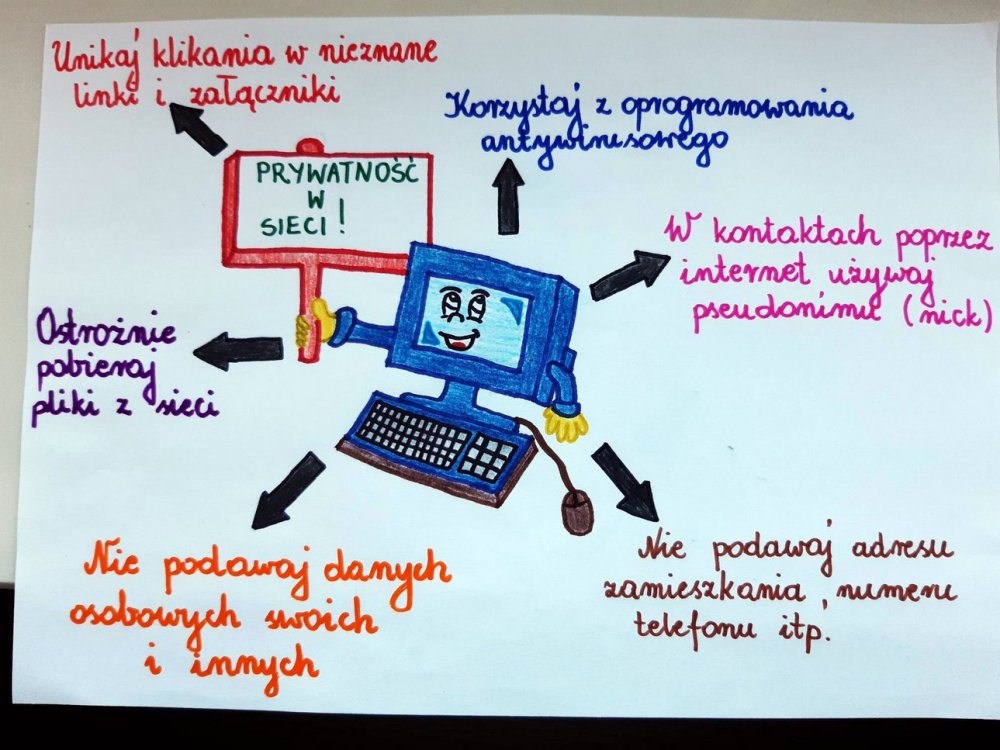 Unikaj klikania w nieznane
linki i załączniki
Korzystaj z oprogramowania
antywirusowego
PRYWATNOŚĆ
W
SIECI!
W kontaktach poprzez
internet używaj
pseudonimu (nick)
Ostrożnie
pobieraj
pliki z sieci
Nie podawaj danych
osobowych swoich
i innych
Nie podawaj adresu
zamieszkania, numeru
telefonu itp.